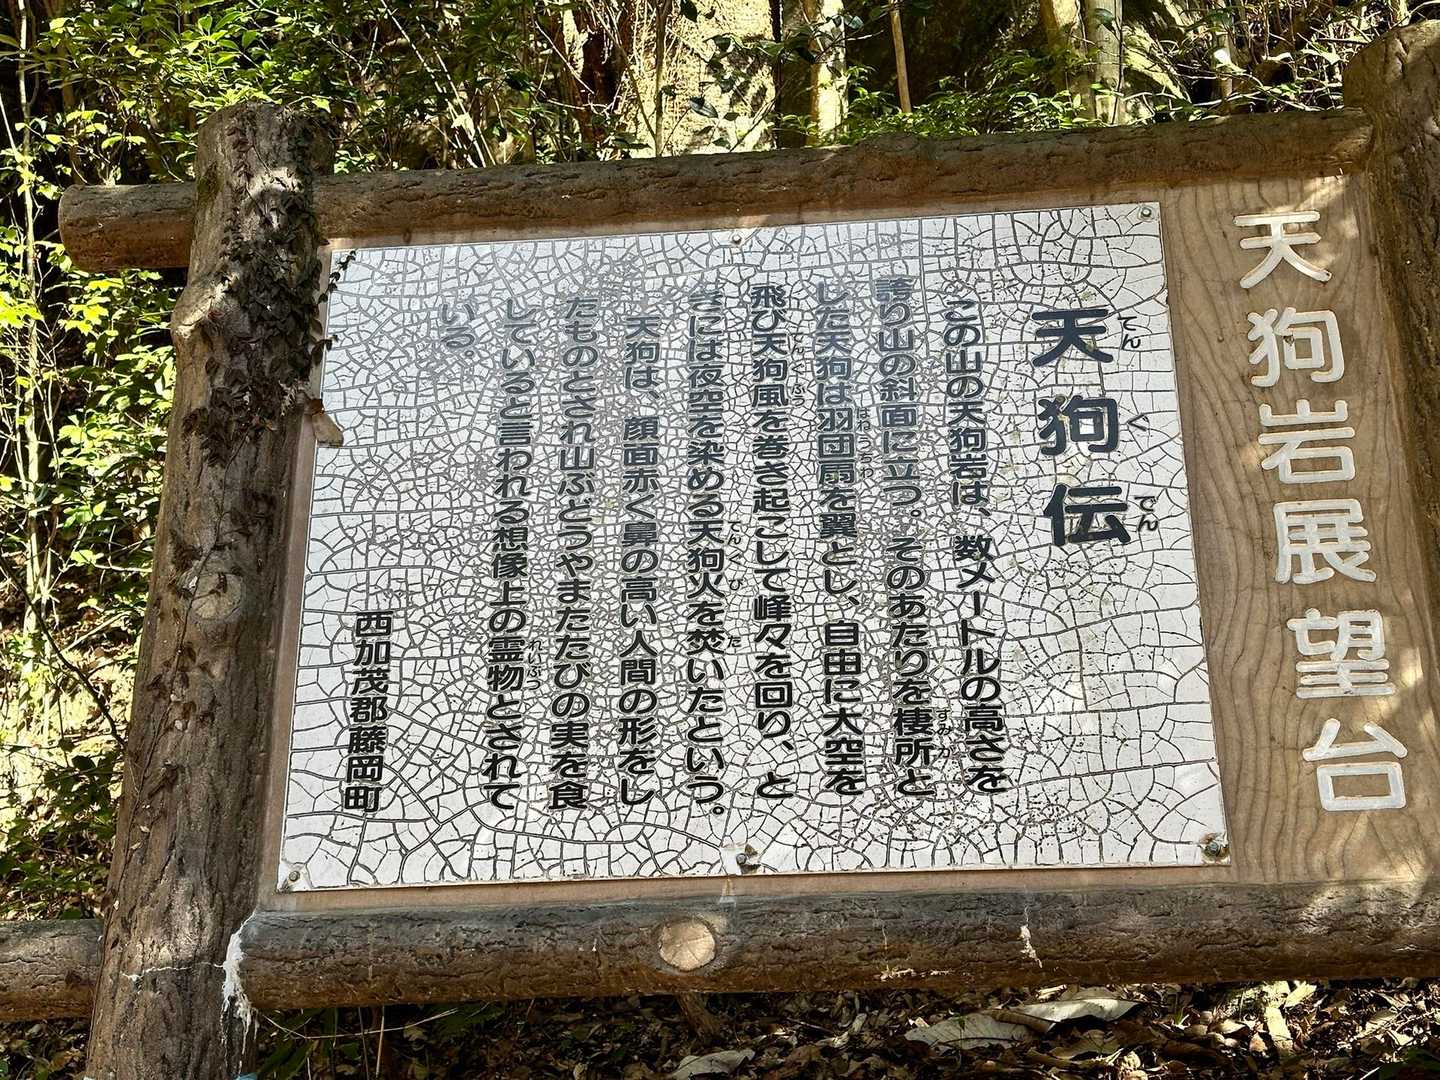 天狗岩展望台
天狗伝
てんぐでん
この山の天狗岩は、数メートルの高さを
誇り山の斜面に立つ。そのあたりを棲所と
すみか
した天狗は羽団扇を翼とし、自由に大空を
はねうちわ
飛び天狗風を巻き起こして峰々を回り、と
てんぐふう
きには夜空を染める天狗火を焚いたという。
てんぐび
た
天狗は、顔面赤く鼻の高い人間の形をし
たものとされ山ぶどうやまたたびの実を食
していると言われる想像上の霊物とされて
れいぶつ
いる。
西加茂郡藤岡町